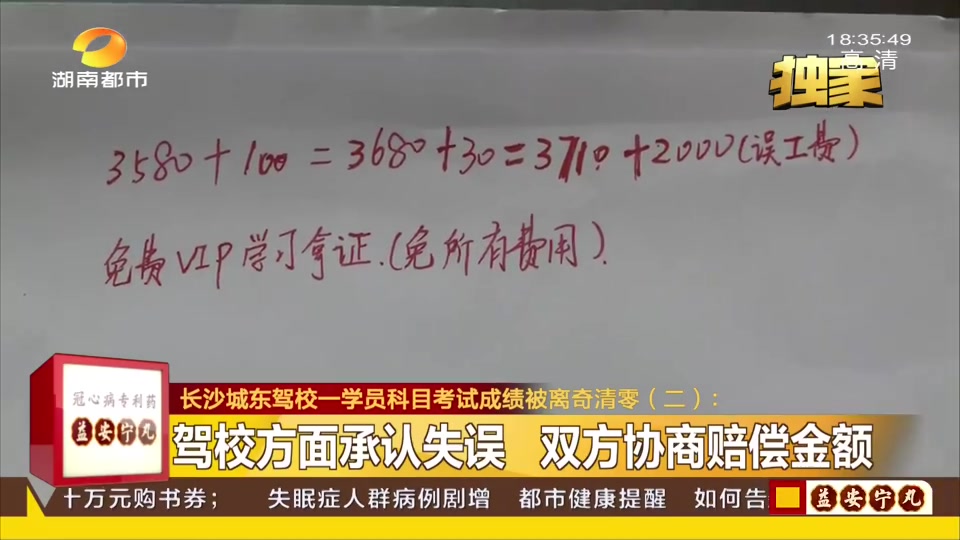 湖南都市
18:35:49
高清
独家
3580+100=3680+30=3710+2000(误工费)
免费VIP学习拿证.(免所有费用).
冠心病专利药
益安宁丸
长沙城东驾校一学员科目考试成绩被离奇清零（二）：
驾校方面承认失误 双方协商赔偿金额
十万元购书券； 失眠症人群病例剧增 都市健康提醒 如何告
益安宁丸